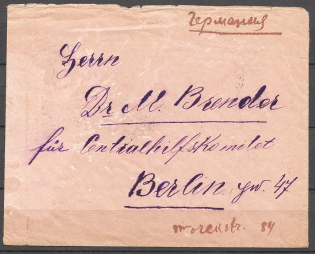 Германия
Herrn
Dr M. Brender
für Centralhilfskomitet
Berlin
47
84